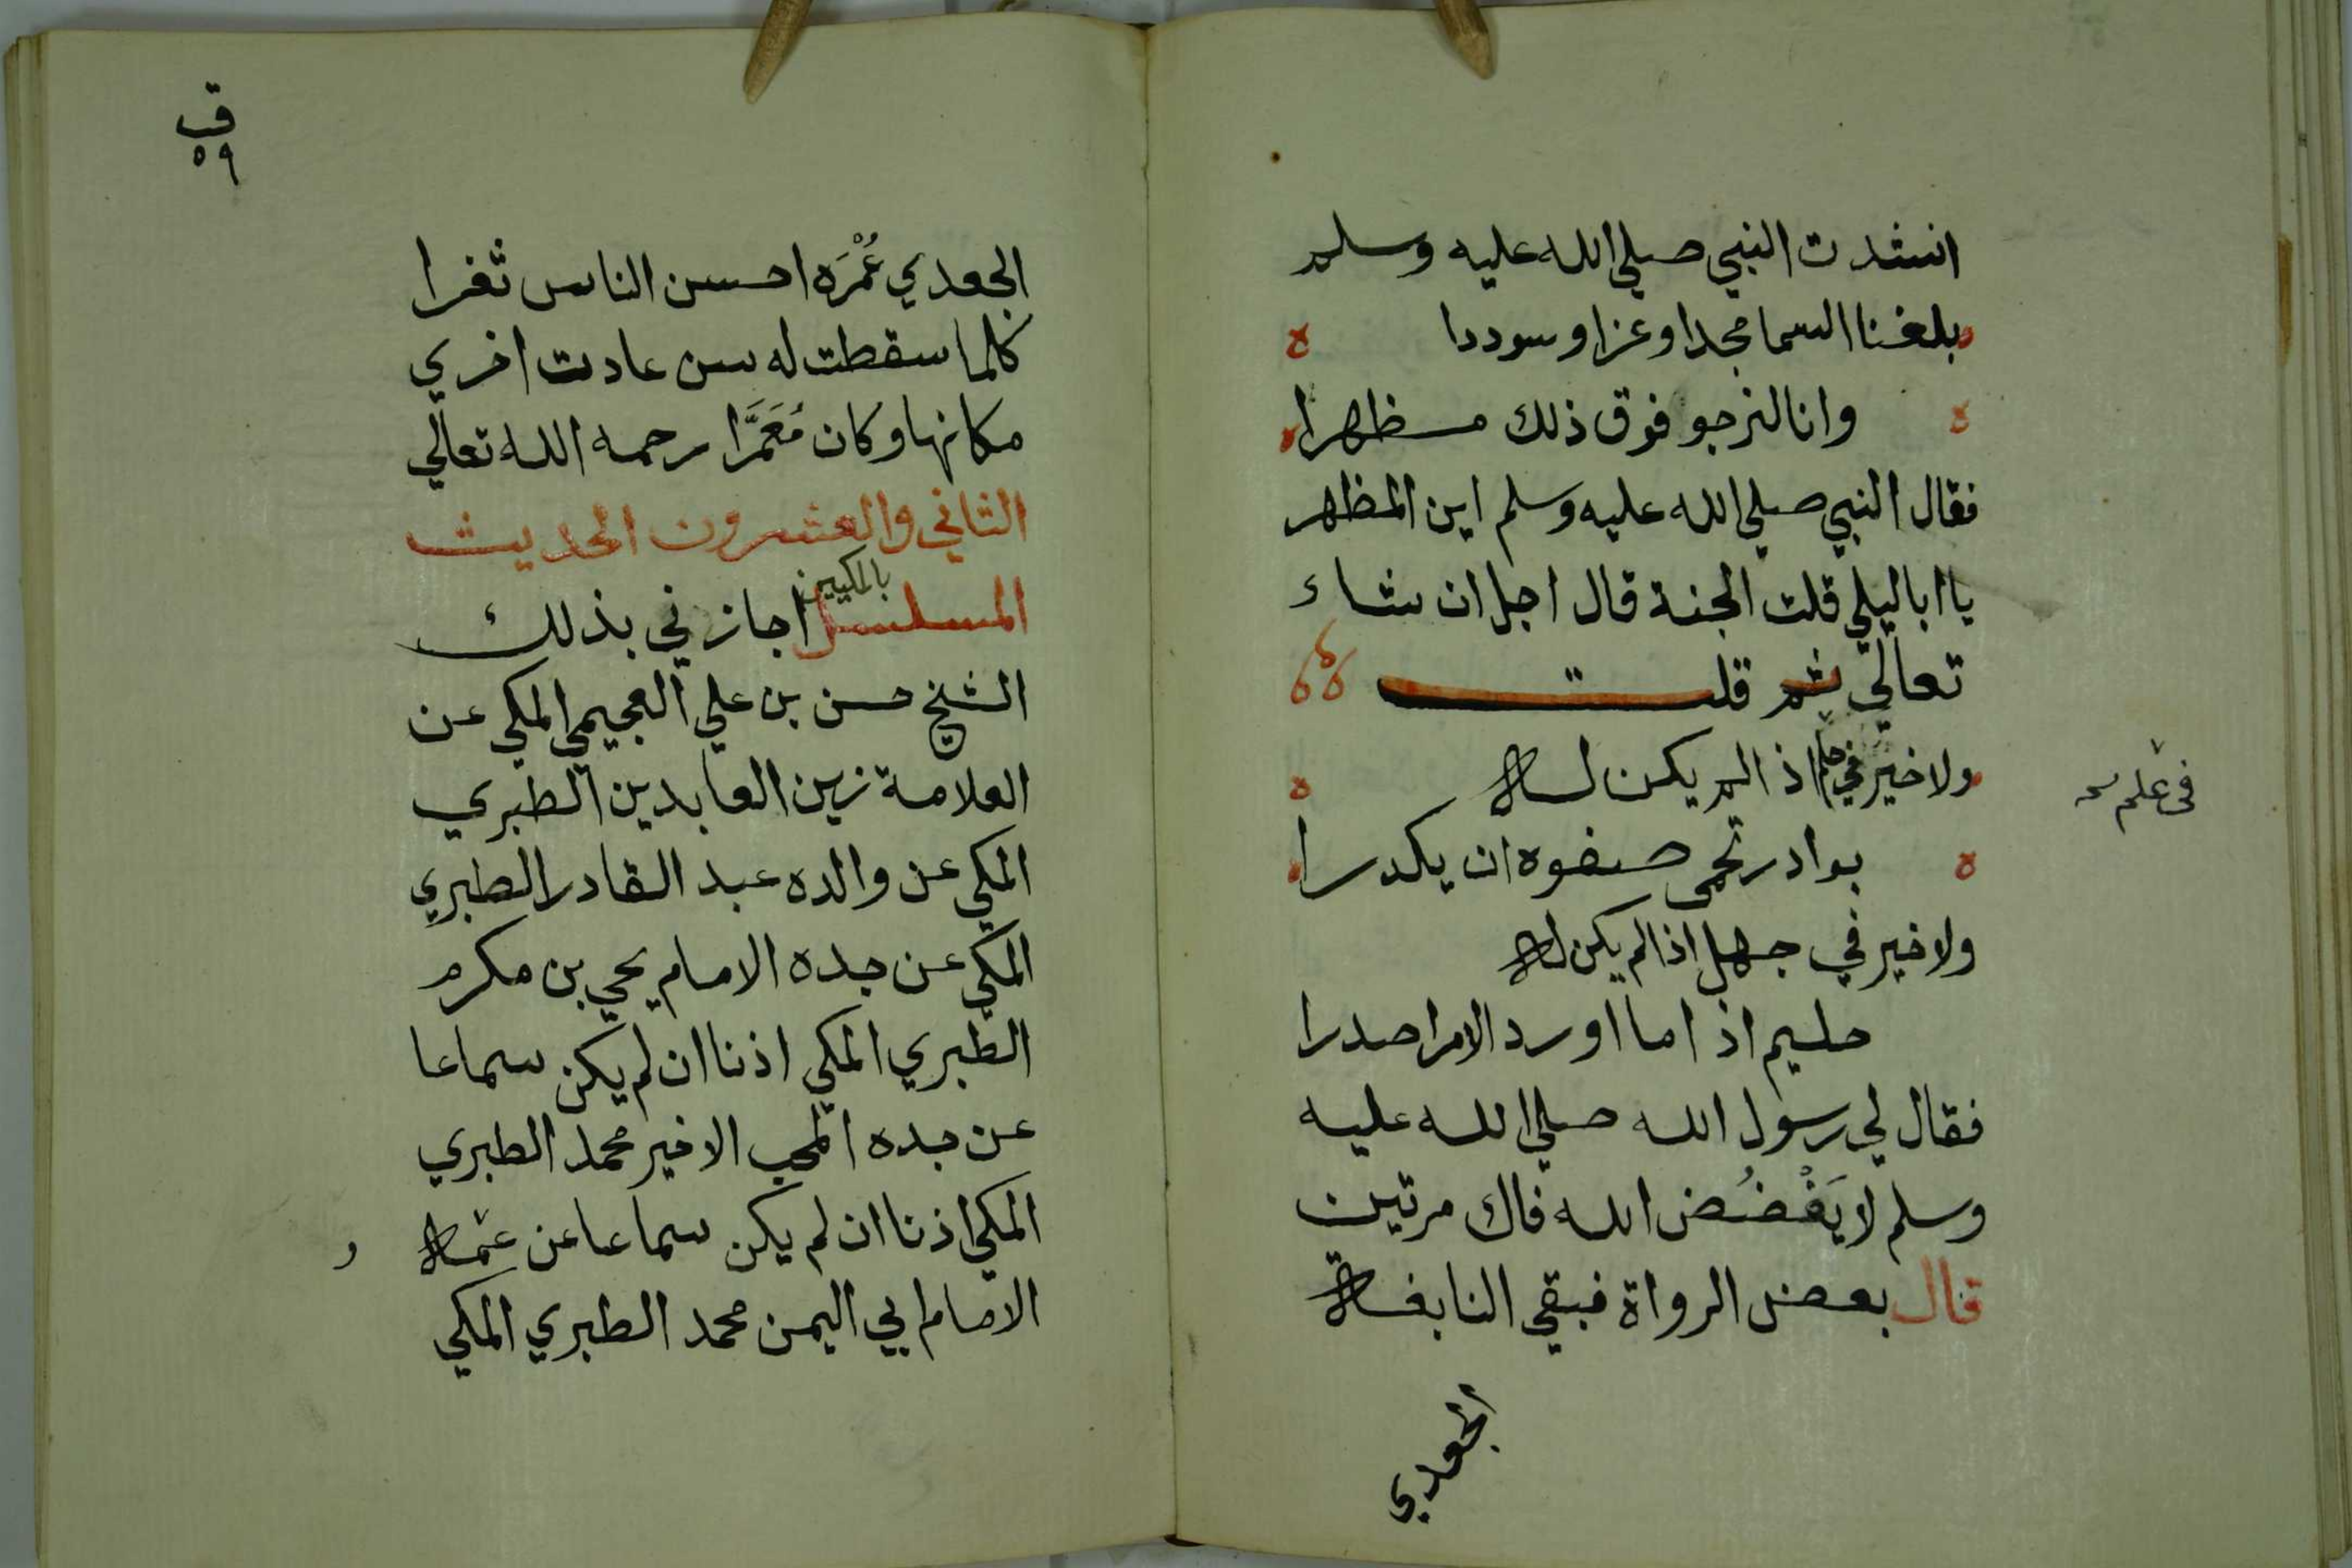 انشدت النبي صلي الله عليه وسلم
بلغنا السما مجدا وعزا وسوددا
وانا لنرجو فوق ذلك مظهرا
فقال النبي صلي الله عليه وسلم اين المظهر
يا ابا ليلي قلت الجنة قال اجل ان شاء
تعالي ثم قلت
ولا خير في حلم اذا لم يكن له
في علم
بوادر تحمي صفوه ان يكدرا
ولا خير في جهل اذا لم يكن له
حليم اذا ما اورد الامر اصدرا
فقال لي رسول الله صلي الله عليه
وسلم لا يَفْضُض الله فاك مرتين
قال بعض الرواة فبقي النابغة
الجعدي
ق
٥٩
الجعدي عُمْرَه احسن الناس ثغرا
كلما سقطت له سن عادت اخري
مكانها وكان مُعَمَّرا رحمه الله تعالي
الثاني والعشرون الحديث
المسلسل بالمكيين اجازني بذلك
الشيخ حسن بن علي العجيمي المكي عن
العلامة زين العابدين الطبري
المكي عن والده عبد القادر الطبري
المكي عن جده الامام يحي بن مكرم
الطبري المكي اذنا ان لم يكن سماعا
عن جده المحب الاخير محمد الطبري
المكي اذنا ان لم يكن سماعا عن عمه
و
الامام ابي اليمن محمد الطبري المكي